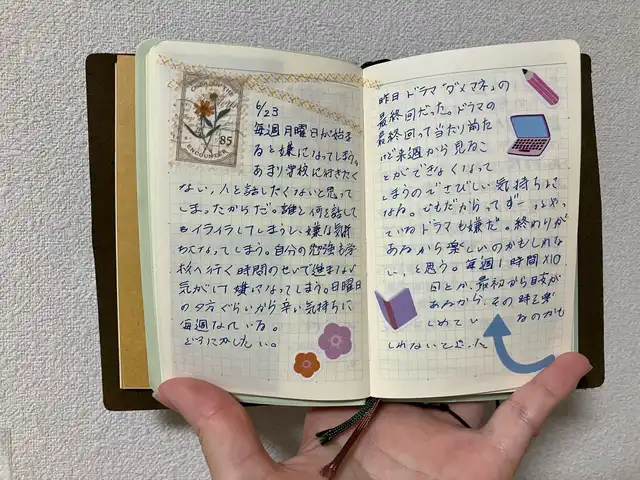 85
ENCOUNTER
6/23
毎週月曜日が始ま
ると嫌になってしまう。
あまり学校に行きたく
ない、人と話したくないと思って
しまったからだ。誰と何を話して
もイライラしてしまうし、嫌な気持
ちになってしまう。自分の勉強も学
校へ行く時間のせいで進まない
気がして嫌になってしまう。日曜日
の夕方ぐらいから辛い気持ちに
毎週なている。
どうにかしたい。
昨日ドラマ「ダメマネ」の
最終回だった。ドラマの
最終回って当たり前だ
けど来週から見るこ
とができなくなって
しまうのでさびしい気持ちに
なる。でもだからってずーっとやっ
ているドラマも嫌だ。終わりが
あるから楽しいのかもしれな
い、と思う。毎週1時間×10
回とか、最初から目安が
あるから、その時を楽
しめてい なのかも
しれないと思った